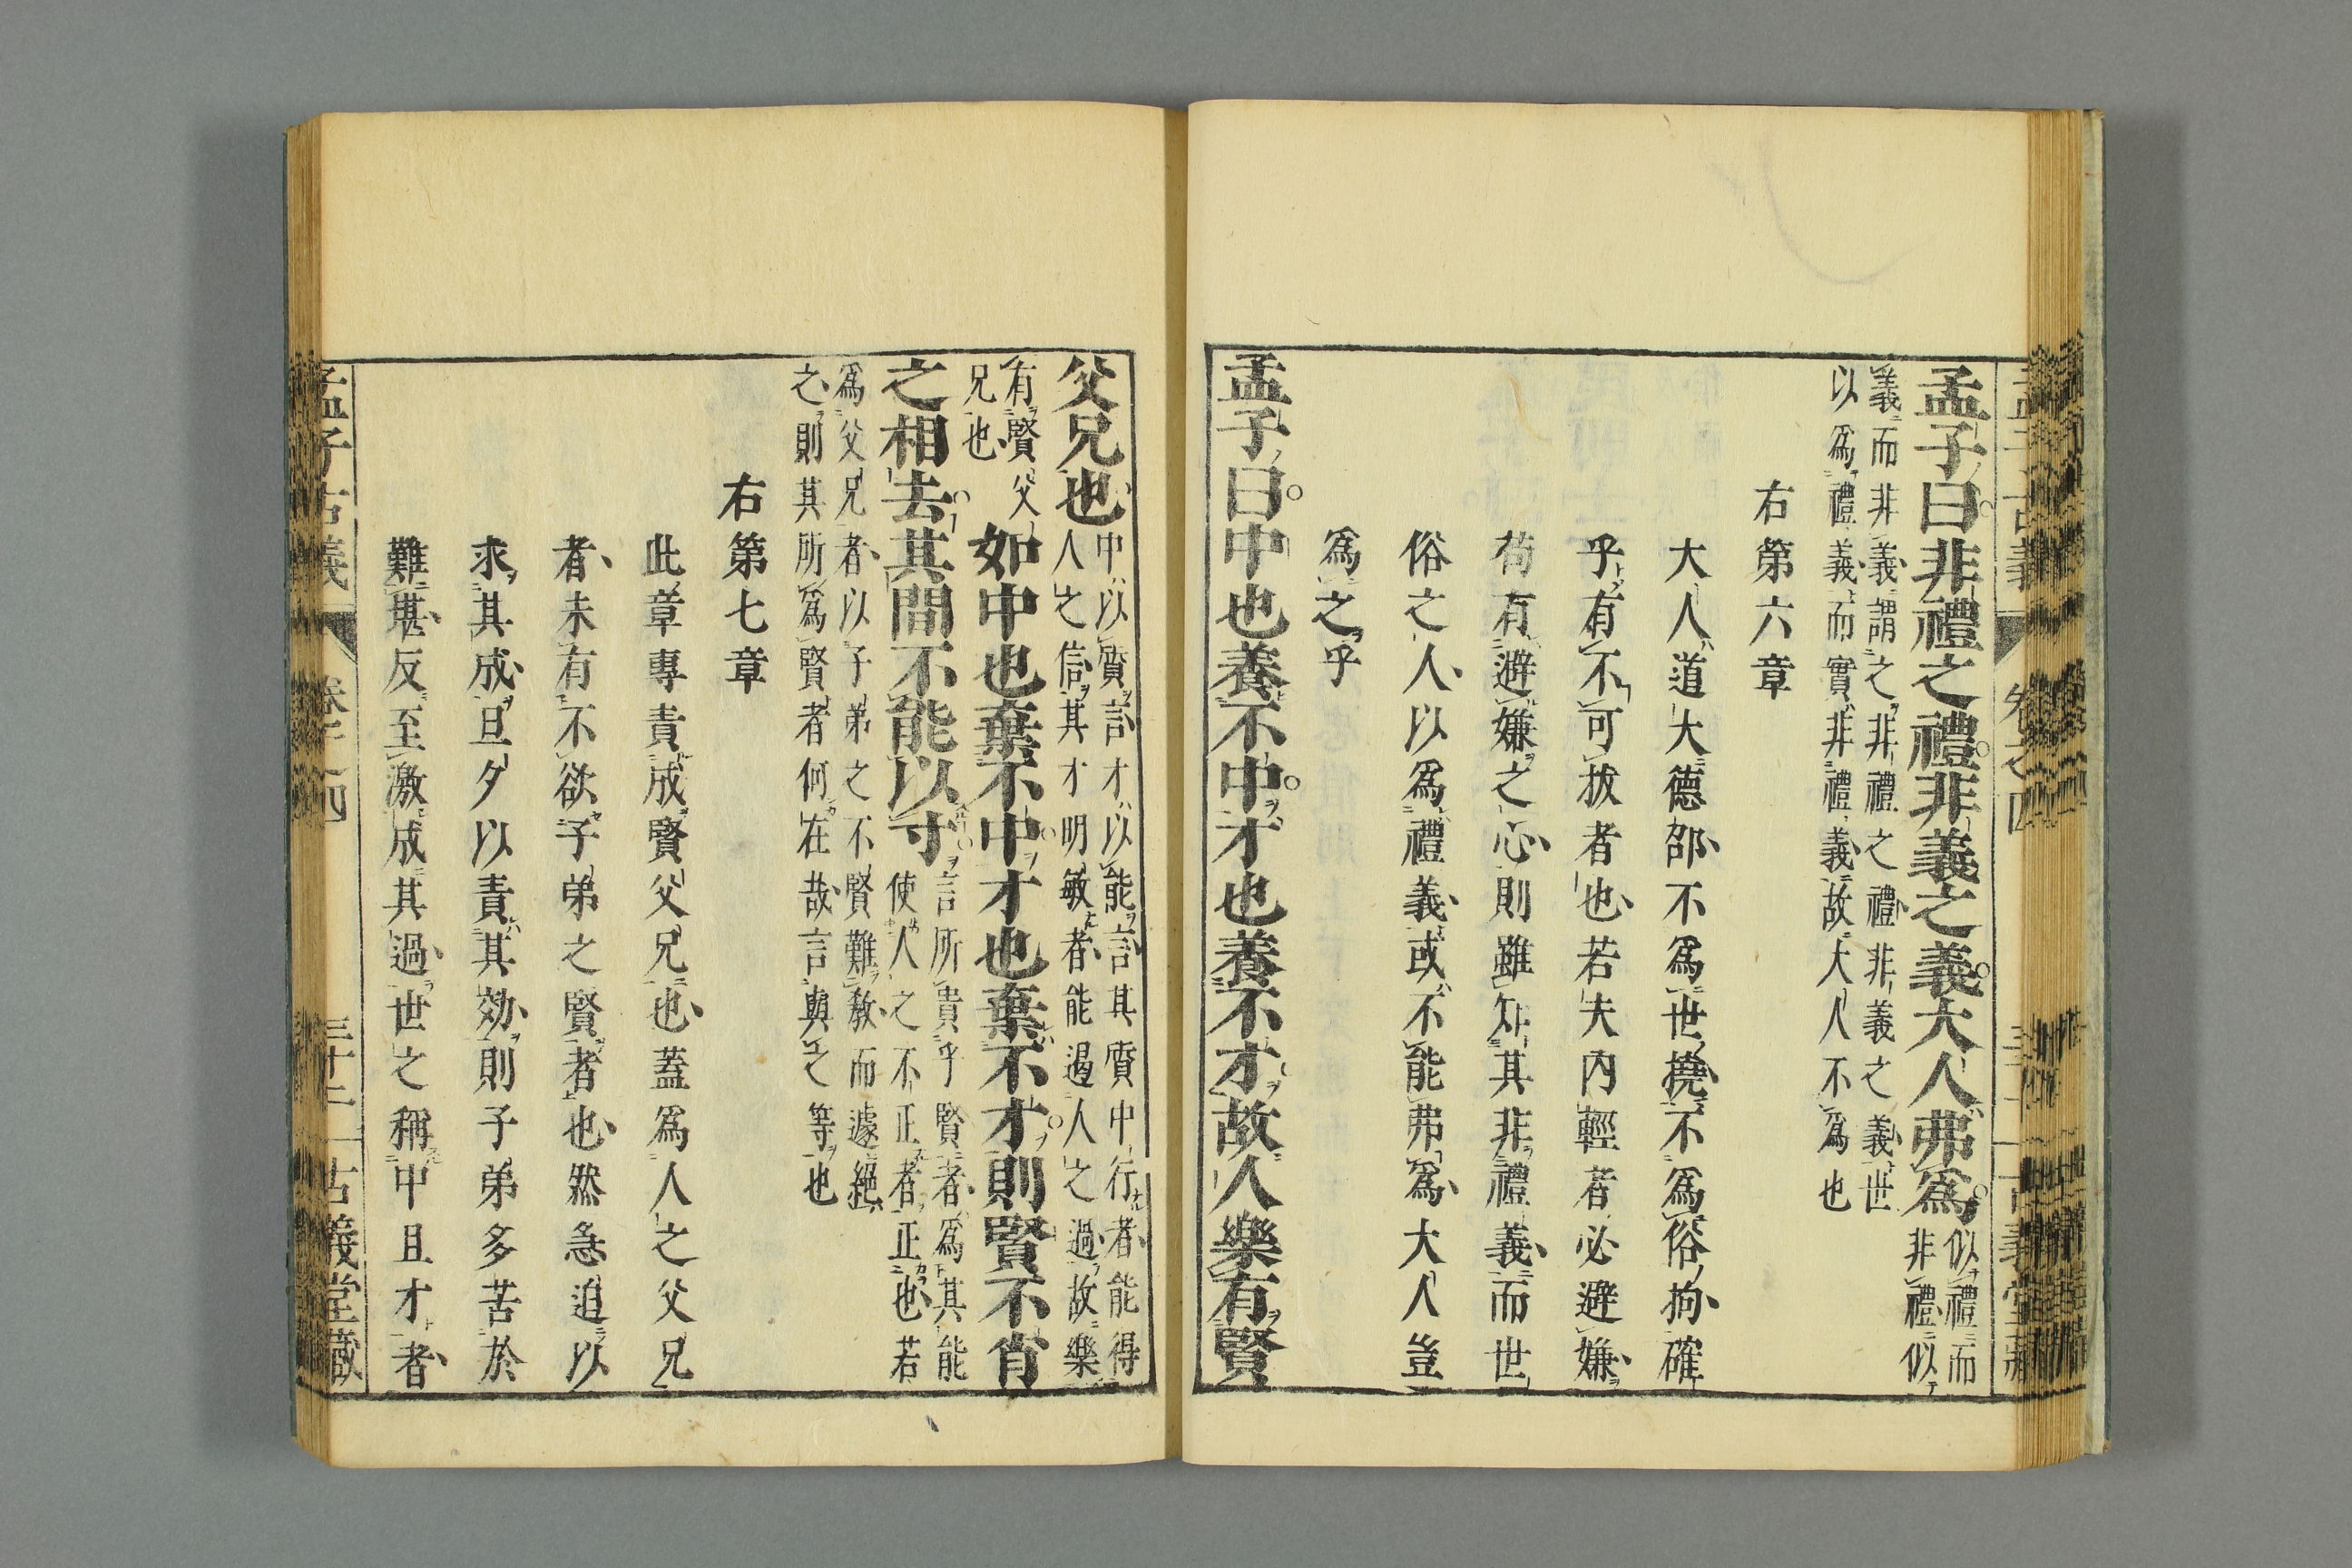 孟子曰非禮之禮非義之義大人弗爲
似禮而
非禮似
義而非義謂之非禮之禮非義之義世
以爲禮義而實非禮義故大人不爲也
右第六章
大人道大德邵不爲世撓不爲俗拘確
乎有不可拔者也若夫內輕者必避嫌
苟有避嫌之心則雖知其非禮義而世
俗之人以爲禮義或不能弗爲大人豈
爲之乎
孟子曰中也養不中才也養不才故人樂有賢
父兄也
中以質言才以能言其質中行者能得
人之信其才明敏者能過人之過故樂
有賢父
兄也
如中也棄不中才也棄不才則賢不肖
之相去其間不能以寸
言所貴乎賢者爲其能
使人之不正者正也若
爲父兄者以子弟之不賢難敎而遽絕
之則其所爲賢者何在哉言與之等也
右第七章
此章專責成賢父兄也蓋爲人之父兄
者未有不欲子弟之賢者也然急迫以
求其成旦夕以責其効則子弟多苦於
難堪反至激成其過世之稱中且才者
孟子古義
卷之四
三十二
古義堂藏